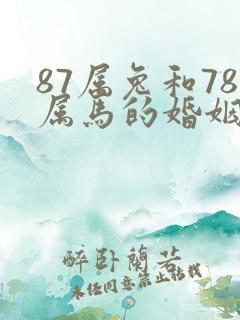 87属兔和78
属马的婚姻
醉卧蘭若
未经同意禁止转载